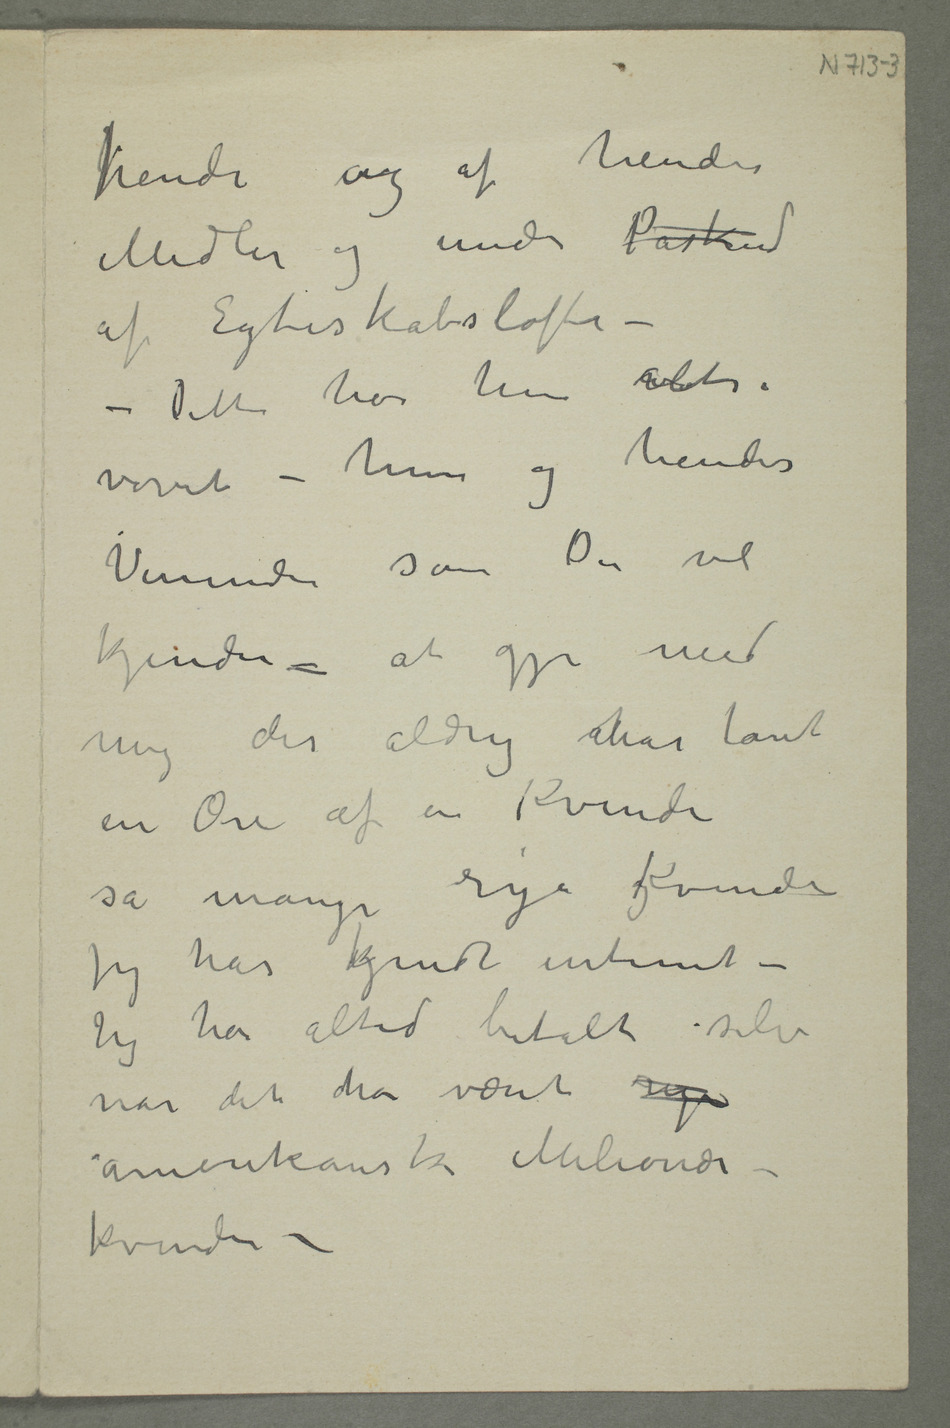 N 713-3
hende og af hendes
Midler og under Påskud
af Egteskabsløfter –
– Dette har hun altså
vovet – hun og hendes
Veninder som De vel
kjender – at gjøre med
mig der aldrig har lånt
en Øre af en Kvinde
så mange rige Kvinder
jeg har kjendt intimt –
Jeg har altid betalt selv
når det har været rige
amerikanske Milionær–
kvinder –